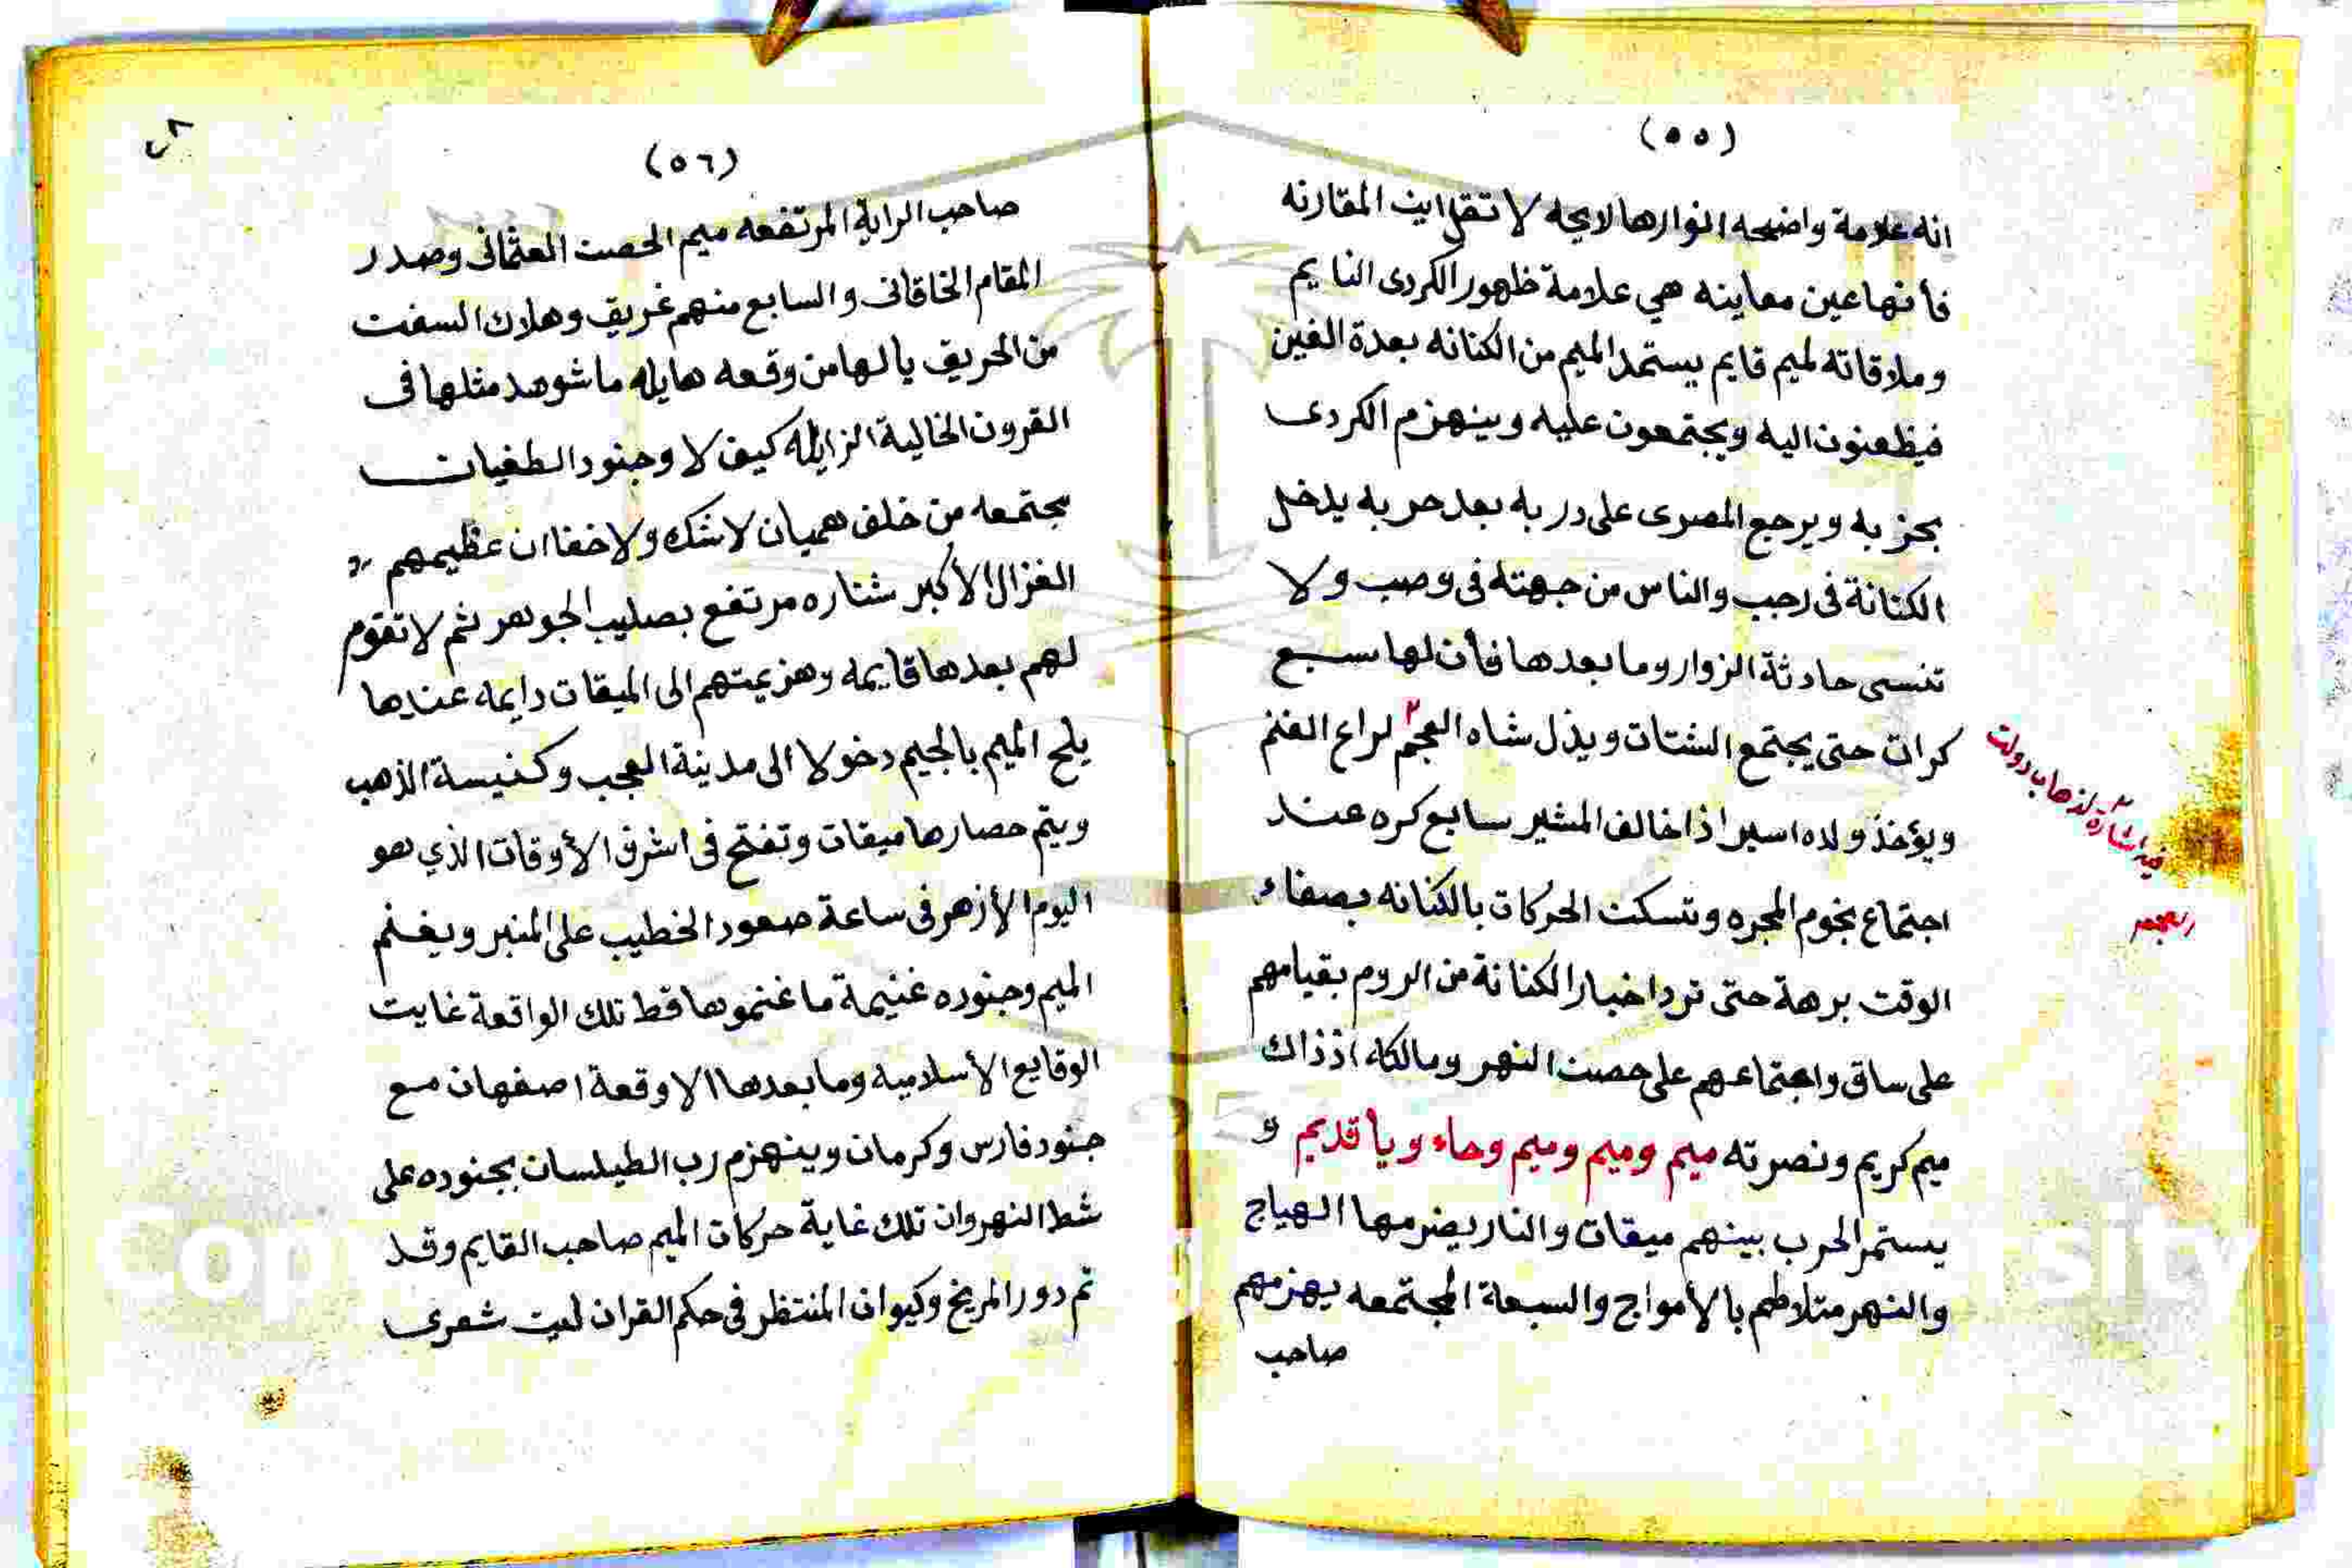 (٥٥)
انه علامة واضحه انوارها لايحه لا تقل اين المقارنه
فأنها عين معاينه هي علامة ظهور الكردى النايم
وملاقاته لميم قايم يستمد الميم من الكنانه بعدة الفين
فيظعنون اليه ويجتمعون عليه وينهزم الكردى
بحزبه ويرجع المصرى على دربه بعد حربه يدخل
الكنانة فى رجب والناس من جهته فى وصب ولا
تنسى حادثة الزوار وما بعدها فأن لها سبع
كرات حتى يجتمع الشتات ويذل شاه العجم لراع الغنم
ويؤخذ ولده اسير اذا خالف المشير سابع كره عند
اجتماع نجوم المجره وتسكن الحركات بالكنانه بصفاء
الوقت برهة حتى ترد اخبار الكنانة من الروم بقيامهم
على ساق واجتماعهم على حصن النهر ومالكه اذ ذاك
ميم كريم ونصرته ميم وميم وميم وحاء ويا قديم و
يستمر الحرب بينهم ميقات والنار يضرمها الهياج
والنهر متلاطم بالأمواج والسبعة المجتمعه يهزمهم
صاحب
فيه اشارة لذهاب دولت
العجم
(٥٦)
صاحب الراية المرتفعه ميم الحصن العثمانى وصدر
المقام الخاقانى والسابع منهم غريق وهلاك السفن
من الحريق يا لها من وقعه هايله ما شوهد مثلها فى
القرون الخالية الزايله كيف لا وجنود الطغيان
مجتمعه من خلف هميان لا شك ولا خفا ان عظيمهم
الغزال الأكبر شناره مرتفع بصليب الجوهر ثم لا تقوم
لهم بعدها قايمه وهزيمتهم الى الميقات دايمه عندها
يلح الميم بالجيم دخولا الى مدينة العجب وكنيسة الذهب
ويتم حصارها ميقات وتفتح فى اشرف الأوقات الذي هو
اليوم الأزهر فى ساعة صعود الخطيب على المنبر ويغنم
الميم وجنوده غنيمة ما غنموها قط تلك الواقعة غايت
الوقايع الأسلاميه وما بعدها الا وقعة اصفهان مع
جنود فارس وكرمان وينهزم رب الطيلسان بجنوده على
شط النهروان تلك غاية حركات الميم صاحب القايم وقد
تم دور المريخ وكيوان المنتظر فى حكم القران لبيت شعرى